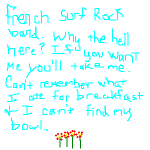 french Surf Rock
band. Why the hell
here? If you want
me you'll take me.
Can't remember what
I ate for breakfast
& I can't find my
bowl.